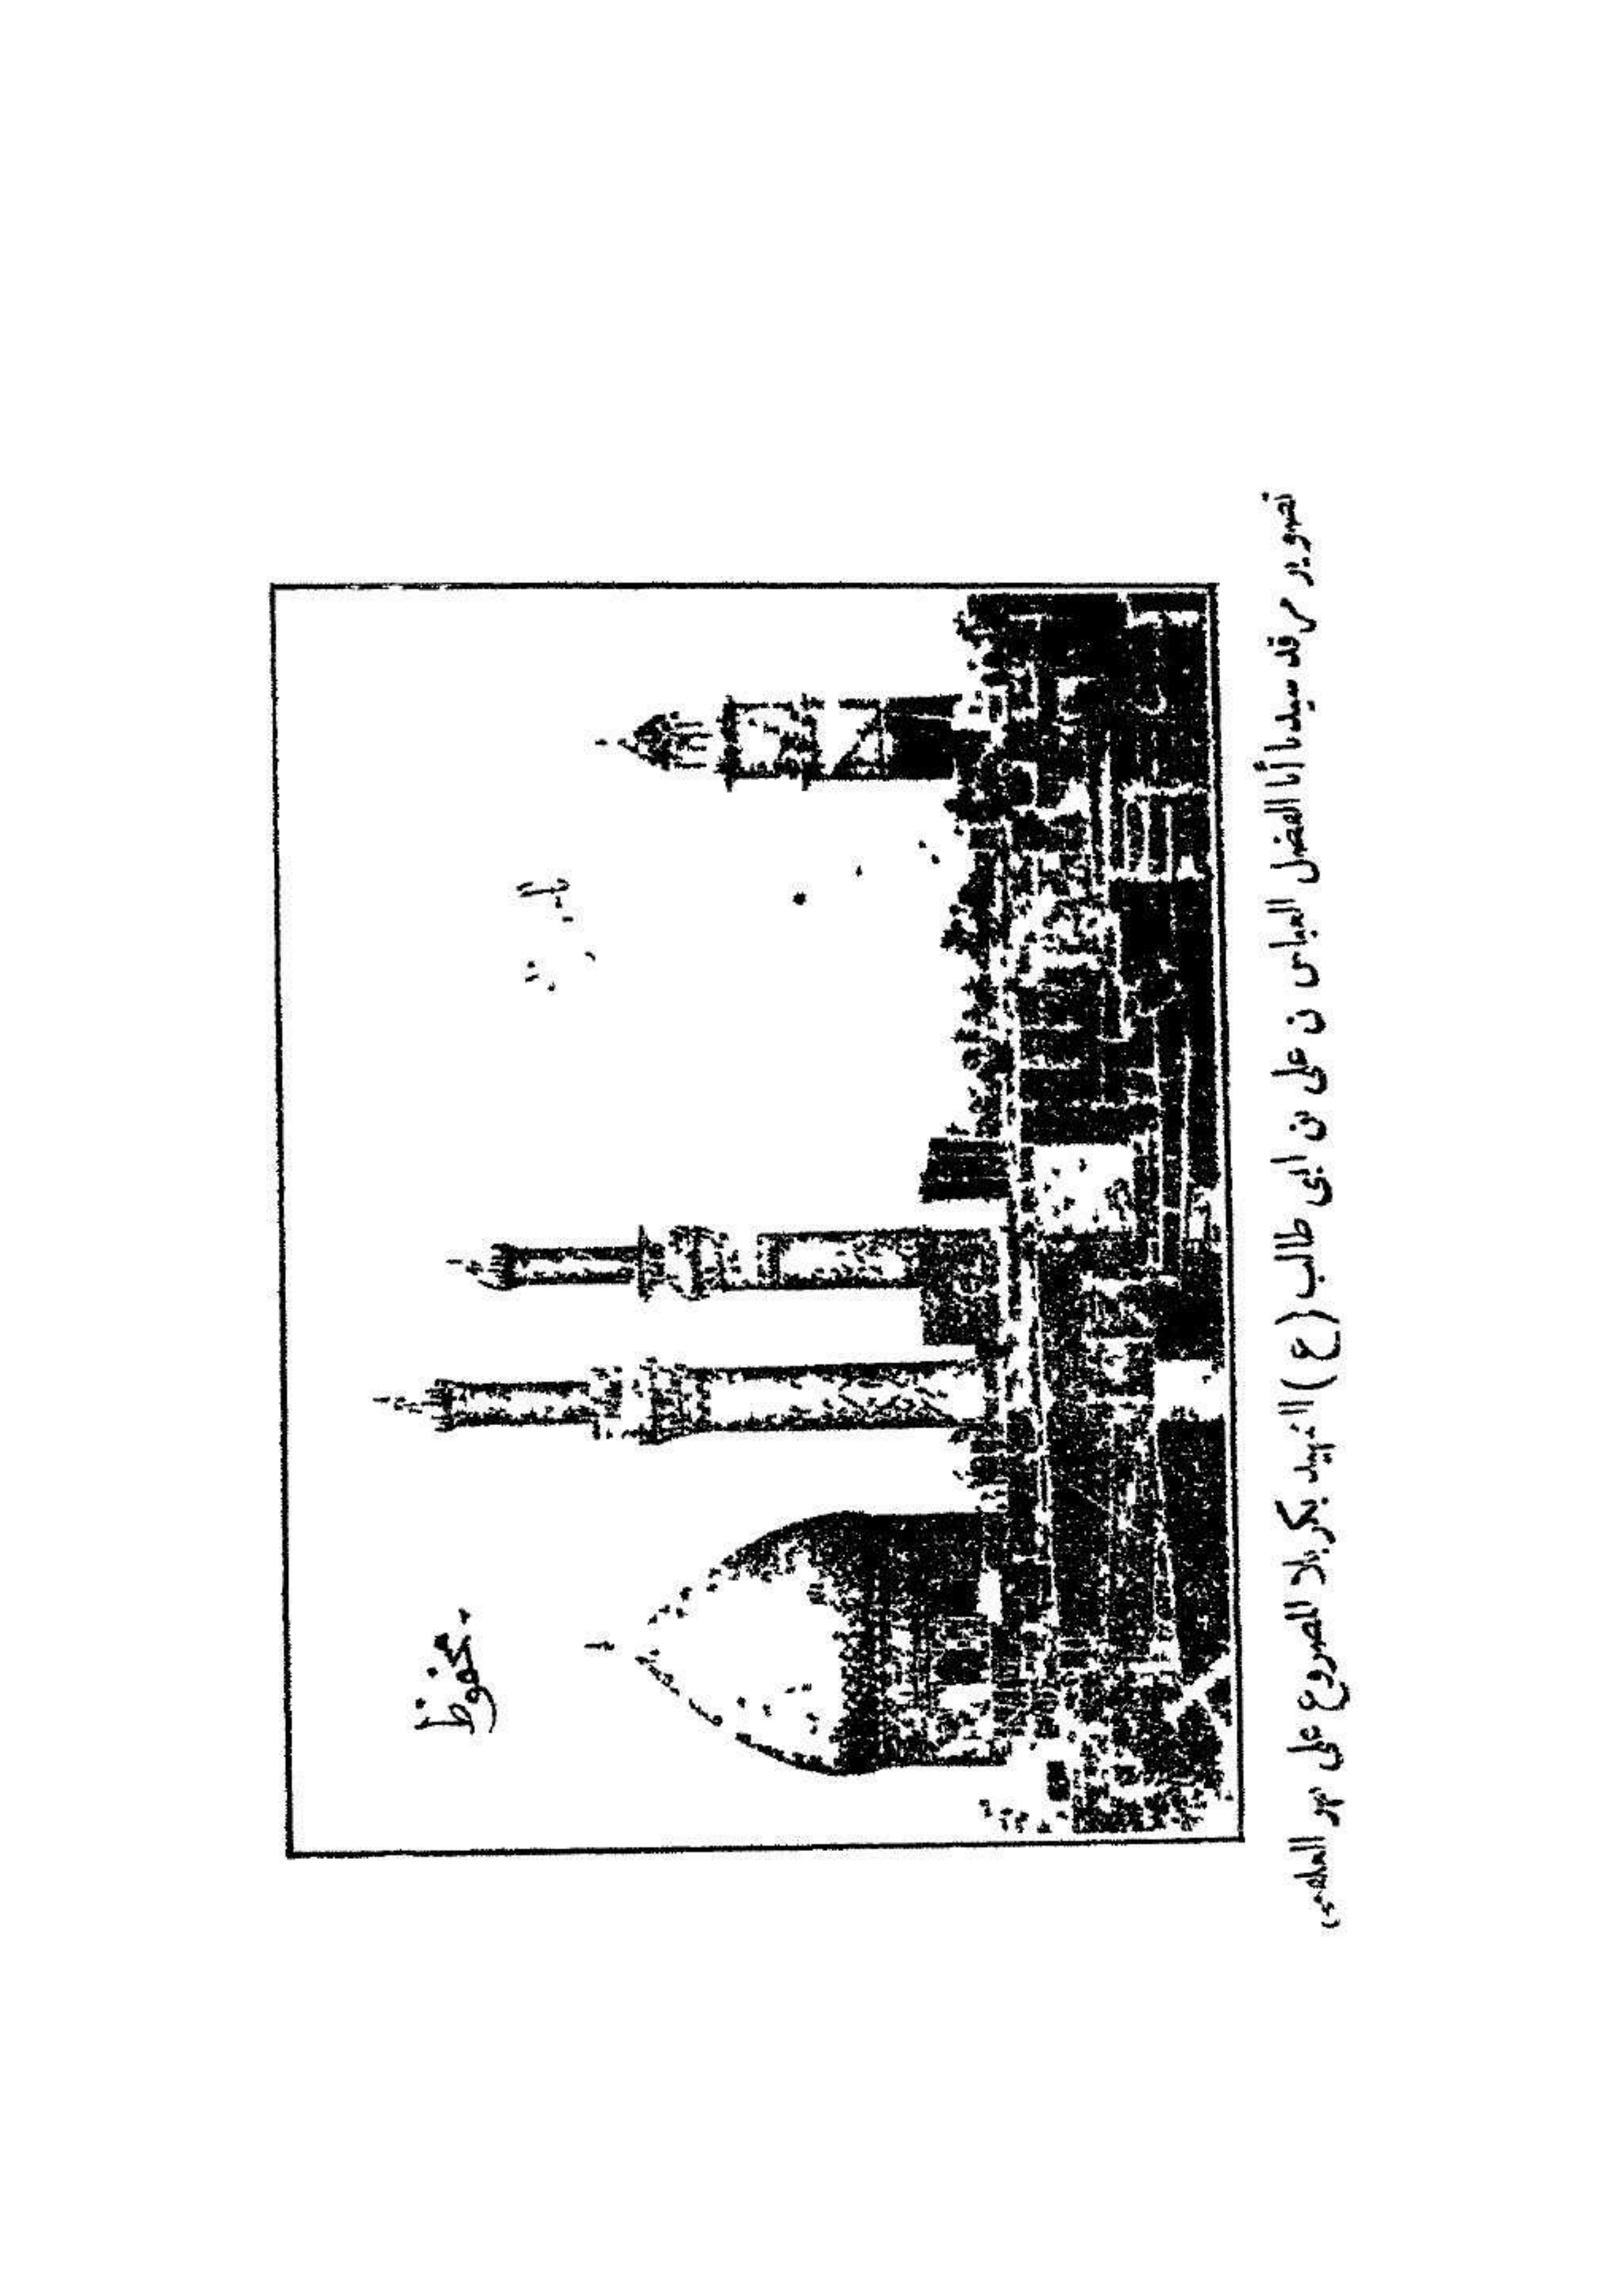 محفوظ
تصوير مرقد سيدنا أبا الفضل العباس بن على بن ابى طالب (ع) الشهيد بكربلا المصروع على نهر العلقمى